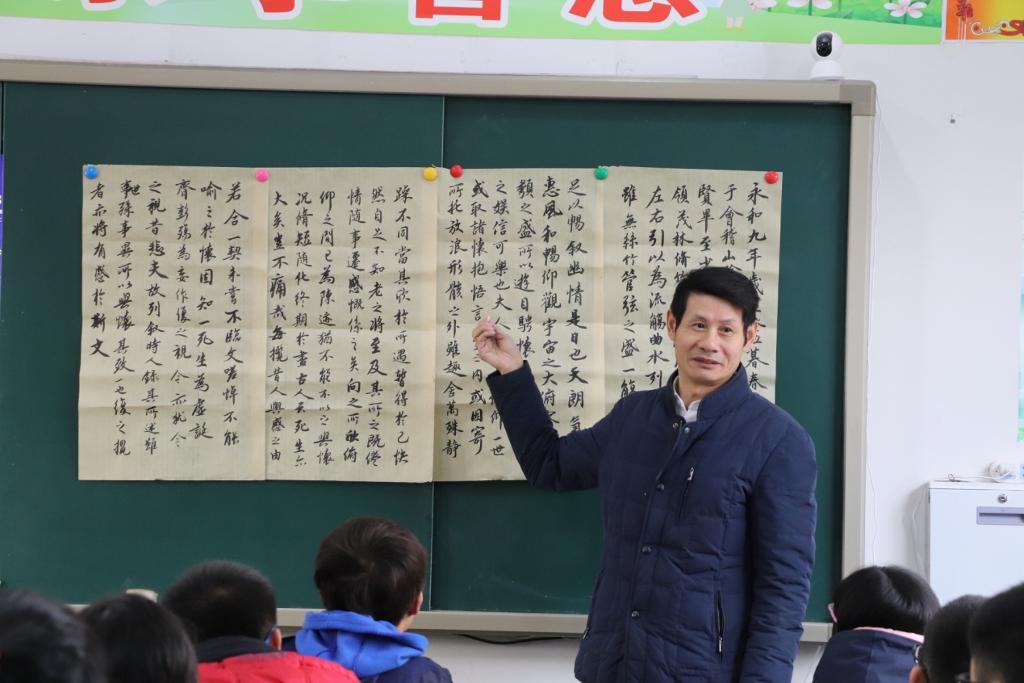 永和九年歲丑暮春
于會稽山
賢畢至少
領茂林脩
左右引以為流觴曲水列
雖無絲竹管弦之盛一觴
足以暢叙幽情是日也天朗氣
惠風和暢仰觀宇宙之大俯
類之盛所以遊目騁懷
之娛信可樂也夫人俯仰一世
或取諸懷抱悟言之內或因寄
所托放浪形骸之外雖趣舍萬殊靜
躁不同當其欣於所遇暫得於己快
然自足不知老之將至及其所之既惓
情隨事遷感慨係之矣向之所欣俛
仰之間已為陳迹猶不能不以之興懷
況脩短隨化終期於盡古人云死生亦
大矣豈不痛哉每攬昔人興感之由
若合一契未嘗不臨文嗟悼不能
喻之於懷固知一死生為虛誕
齊彭殤為妄作後之視今亦猶今
之視昔悲夫故列叙時人錄其所述雖
世殊事異所以興懷其致一也後之攬
者亦將有感於斯文